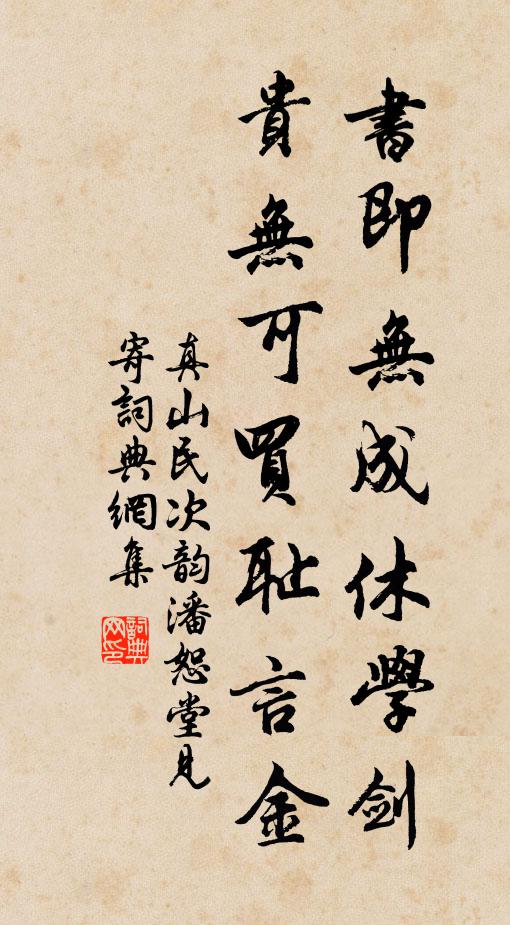 書即無成休學劍
貴無可買耻言金
真山民次韵潘恕堂見
寄詞典網集
詞典網印